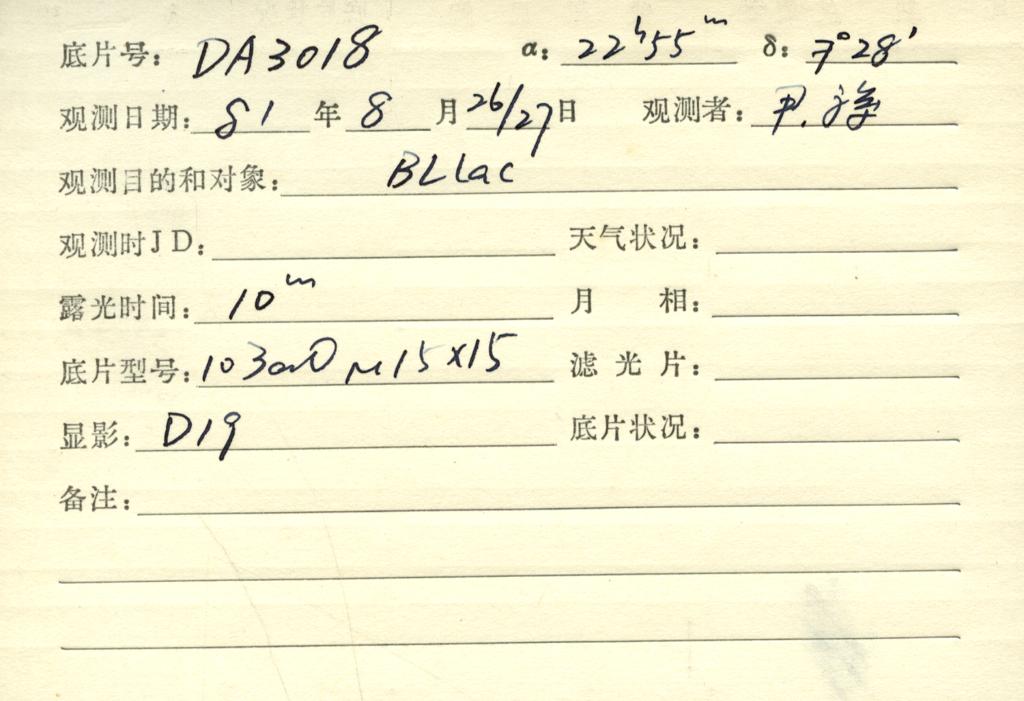 底片号: DA3018 α: 22h55m δ: 7°28′
观测日期: 81 年 8 月 26/27 日 观测者: 尹.
观测目的和对象: BLLac
观测时JD: 天气状况:
露光时间: 10m 月 相:
底片型号: 103aO 15×15 滤光片:
显影: D19 底片状况:
备注: